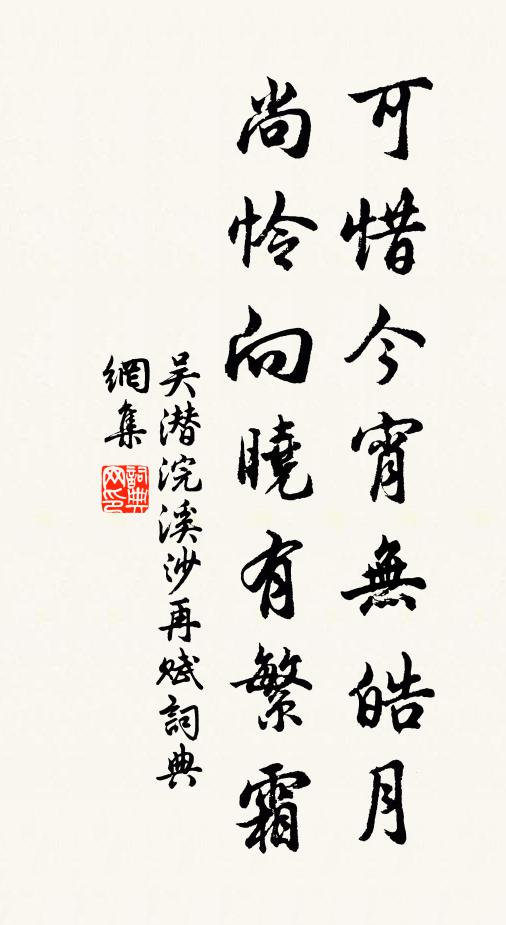 可惜今宵無皓月
尚怜向曉有繁霜
吴潜浣溪沙再赋詞典
網集
詞典
网印